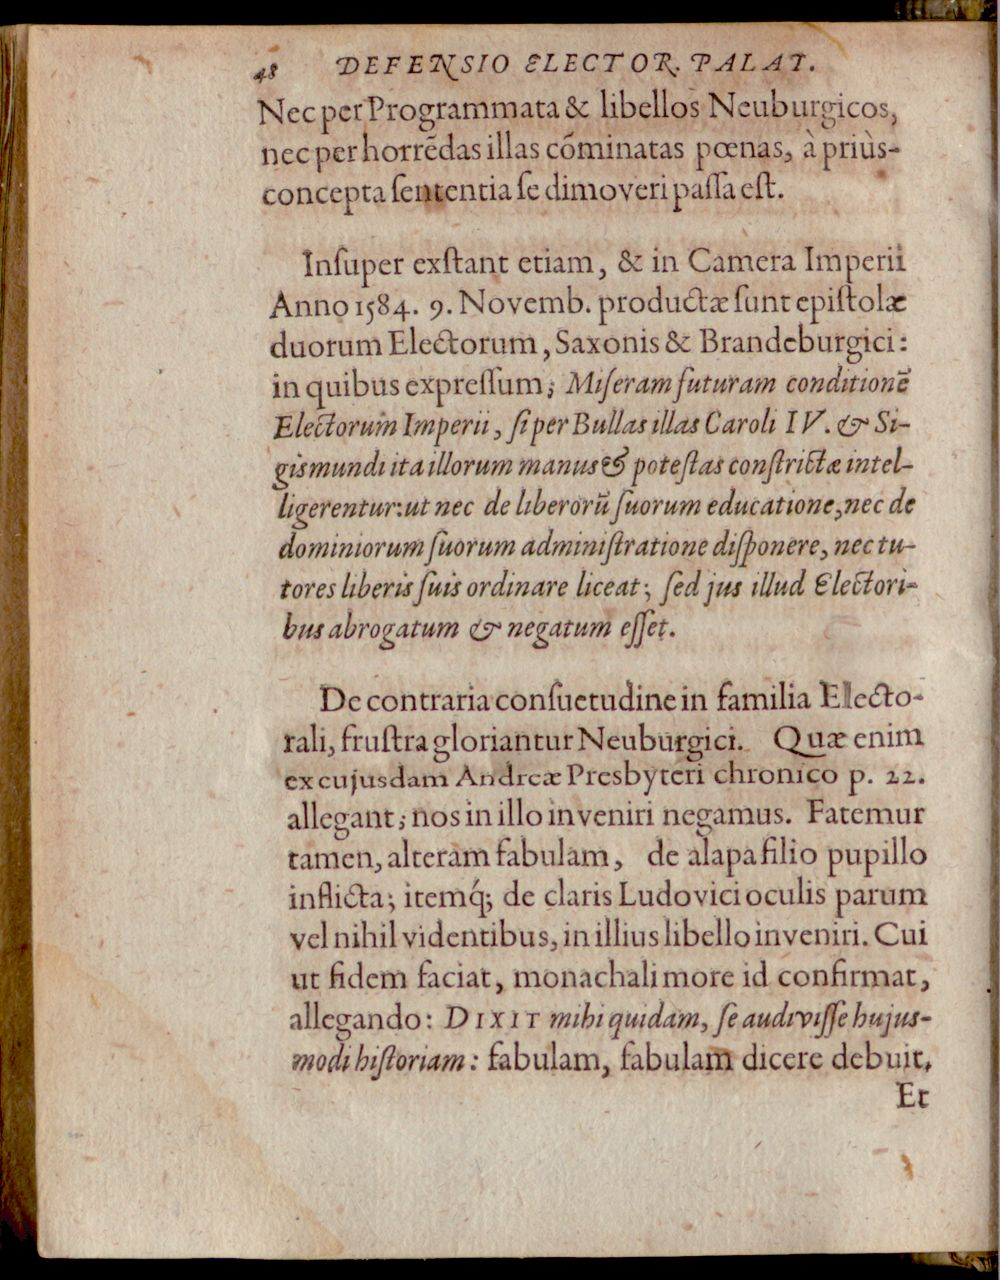 48 DEFENSIO ELECTOR. PALAT.
Nec per Programmata & libellos Neuburgicos,
nec per horrēdas illas cōminatas pœnas, à priùs-
concepta ſententia ſe dimoveri paſſa eſt.
Inſuper exſtant etiam, & in Camera Imperii
Anno 1584. 9. Novemb. productæ ſunt epiſtolæ
duorum Electorum, Saxonis & Brandeburgici:
in quibus expreſſum; Miſeram futuram conditionē
Electorum Imperii, ſi per Bullas illas Caroli IV. & Si-
gismundi ita illorum manus & poteſtas conſtrictæ intel-
ligerentur: ut nec de liberorū ſuorum educatione, nec de
dominiorum ſuorum adminiſtratione diſponere, nec tu-
tores liberis ſuis ordinare liceat; ſed jus illud Electori-
bus abrogatum & negatum eſſet.
De contraria conſuetudine in familia Electo-
rali, fruſtra gloriantur Neuburgici. Quæ enim
ex cujusdam Andreæ Presbyteri chronico p. 22.
allegant; nos in illo inveniri negamus. Fatemur
tamen, alteram fabulam, de alapa filio pupillo
inflicta; itemq́; de claris Ludovici oculis parum
vel nihil videntibus, in illius libello inveniri. Cui
ut fidem faciat, monachali more id confirmat,
allegando: DIXIT mihi quidam, ſe audiviſſe hujus-
modi hiſtoriam: fabulam, fabulam dicere debuit,
Et